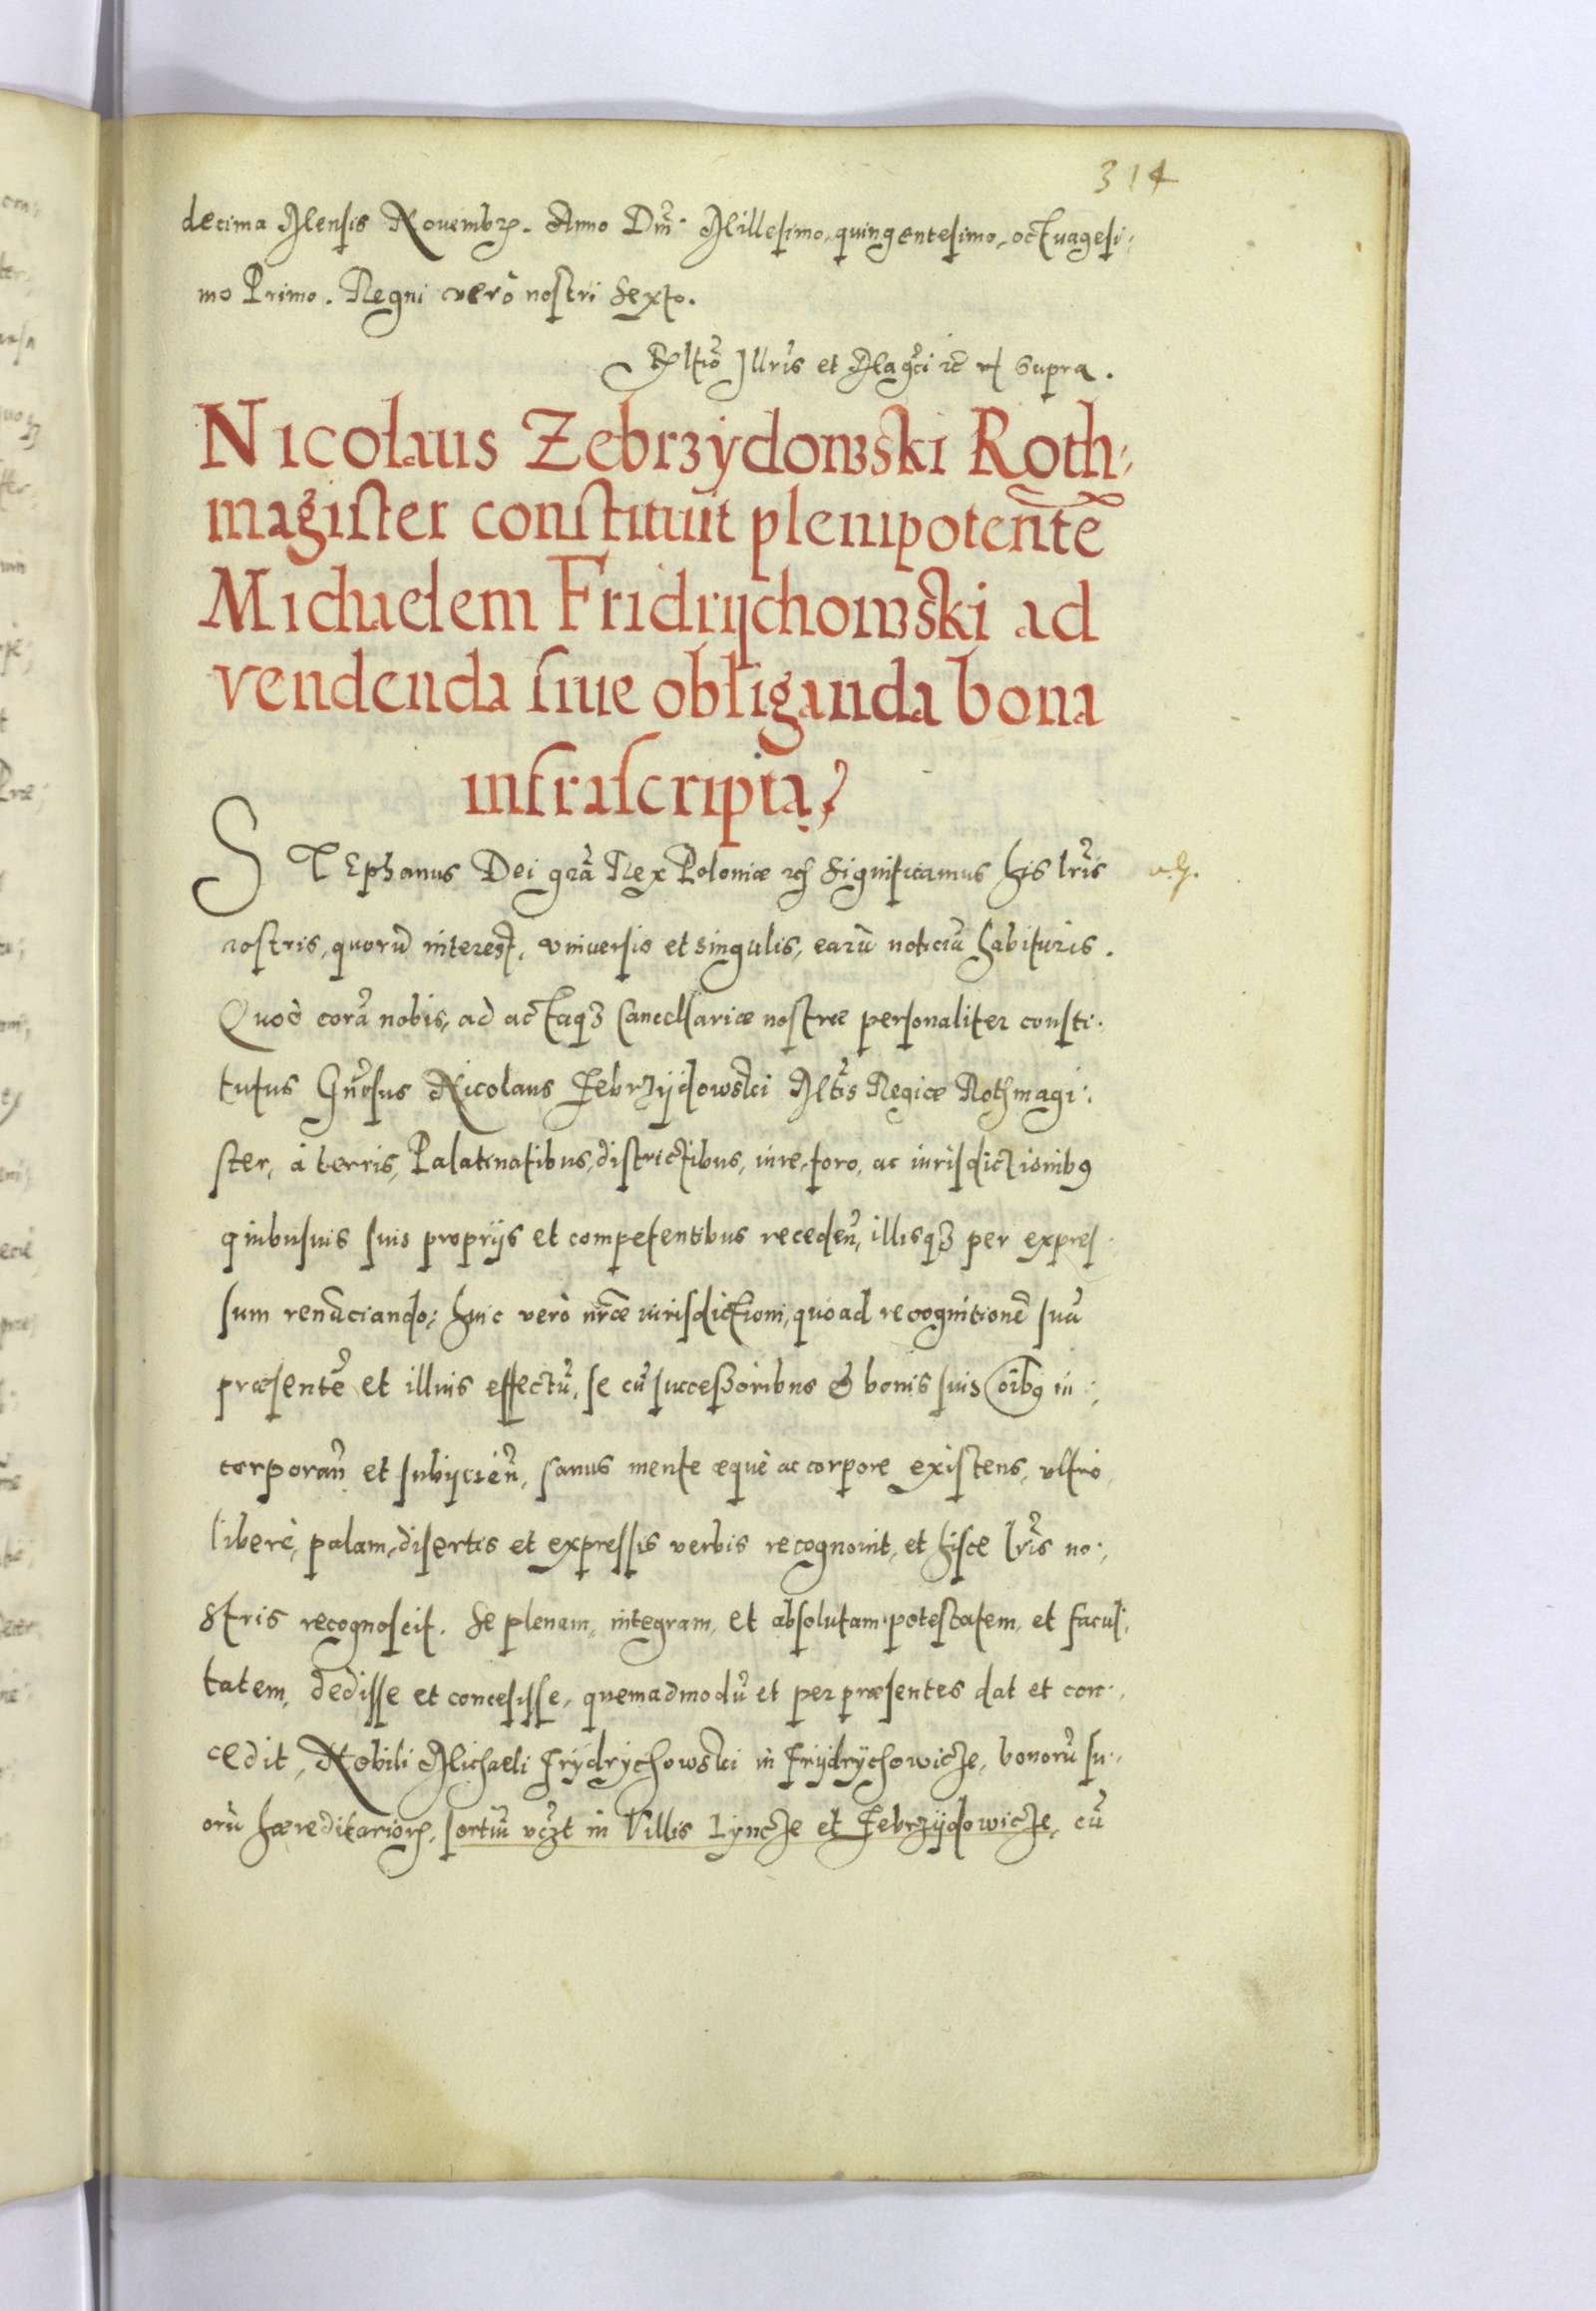 314
decima Mensis Novembr. Anno Dni. Millesimo, quingentesimo, octuagesi:
mo Primo. Regni verò nostri Sexto.
Rltio Illris et Magci etc ut Supra.
Nicolaus Zebrzydowski Roth:
magister constituit plenipotente
Michaelem Fridrychowski ad
vendenda siue obliganda bona
infrascripta,
STEphanus Dei gra Rex Poloniæ etc Significamus his lris
nostris, quorũ interest, vniuersis et singulis, earũ noticiã habituris.
Quod corã nobis, ad actaqʒ Cancellariæ nostræ personaliter consti:
tutus Gnosus Nicolaus Zebrzydowski Mtis Regiæ Rothmagi:
ster, à terris, Palatinatibus, districtibus, iure, foro, ac iurisdictionibꝯ
quibusuis suis proprijs et competentibus recedeñ, illisqʒ per expres:
sum renũciando; huic verò nræ iurisdictioni, quoad recognitionẽ suã
præsentẽ et illius effectũ, se cũ successoribus & bonis suis oibꝯ in:
corporañ et subijcieñ, sanus mente æquè ac corpore existens, vltro
liberè, palam, disertis et expressis verbis recognouit, et hisce lris no:
stris recognoscit. Se plenam, integram, et absolutam potestatem, et facul:
tatem, dedisse et concesisse, quemadmodũ et per præsentes dat et con:
cedit, Nobili Michaeli Frydrychowski in Frydrychowicze, bonorũ su:
orũ hæreditarior, sortiũ vczt in Villis Lyncze et Zebrzydowicze, cũ